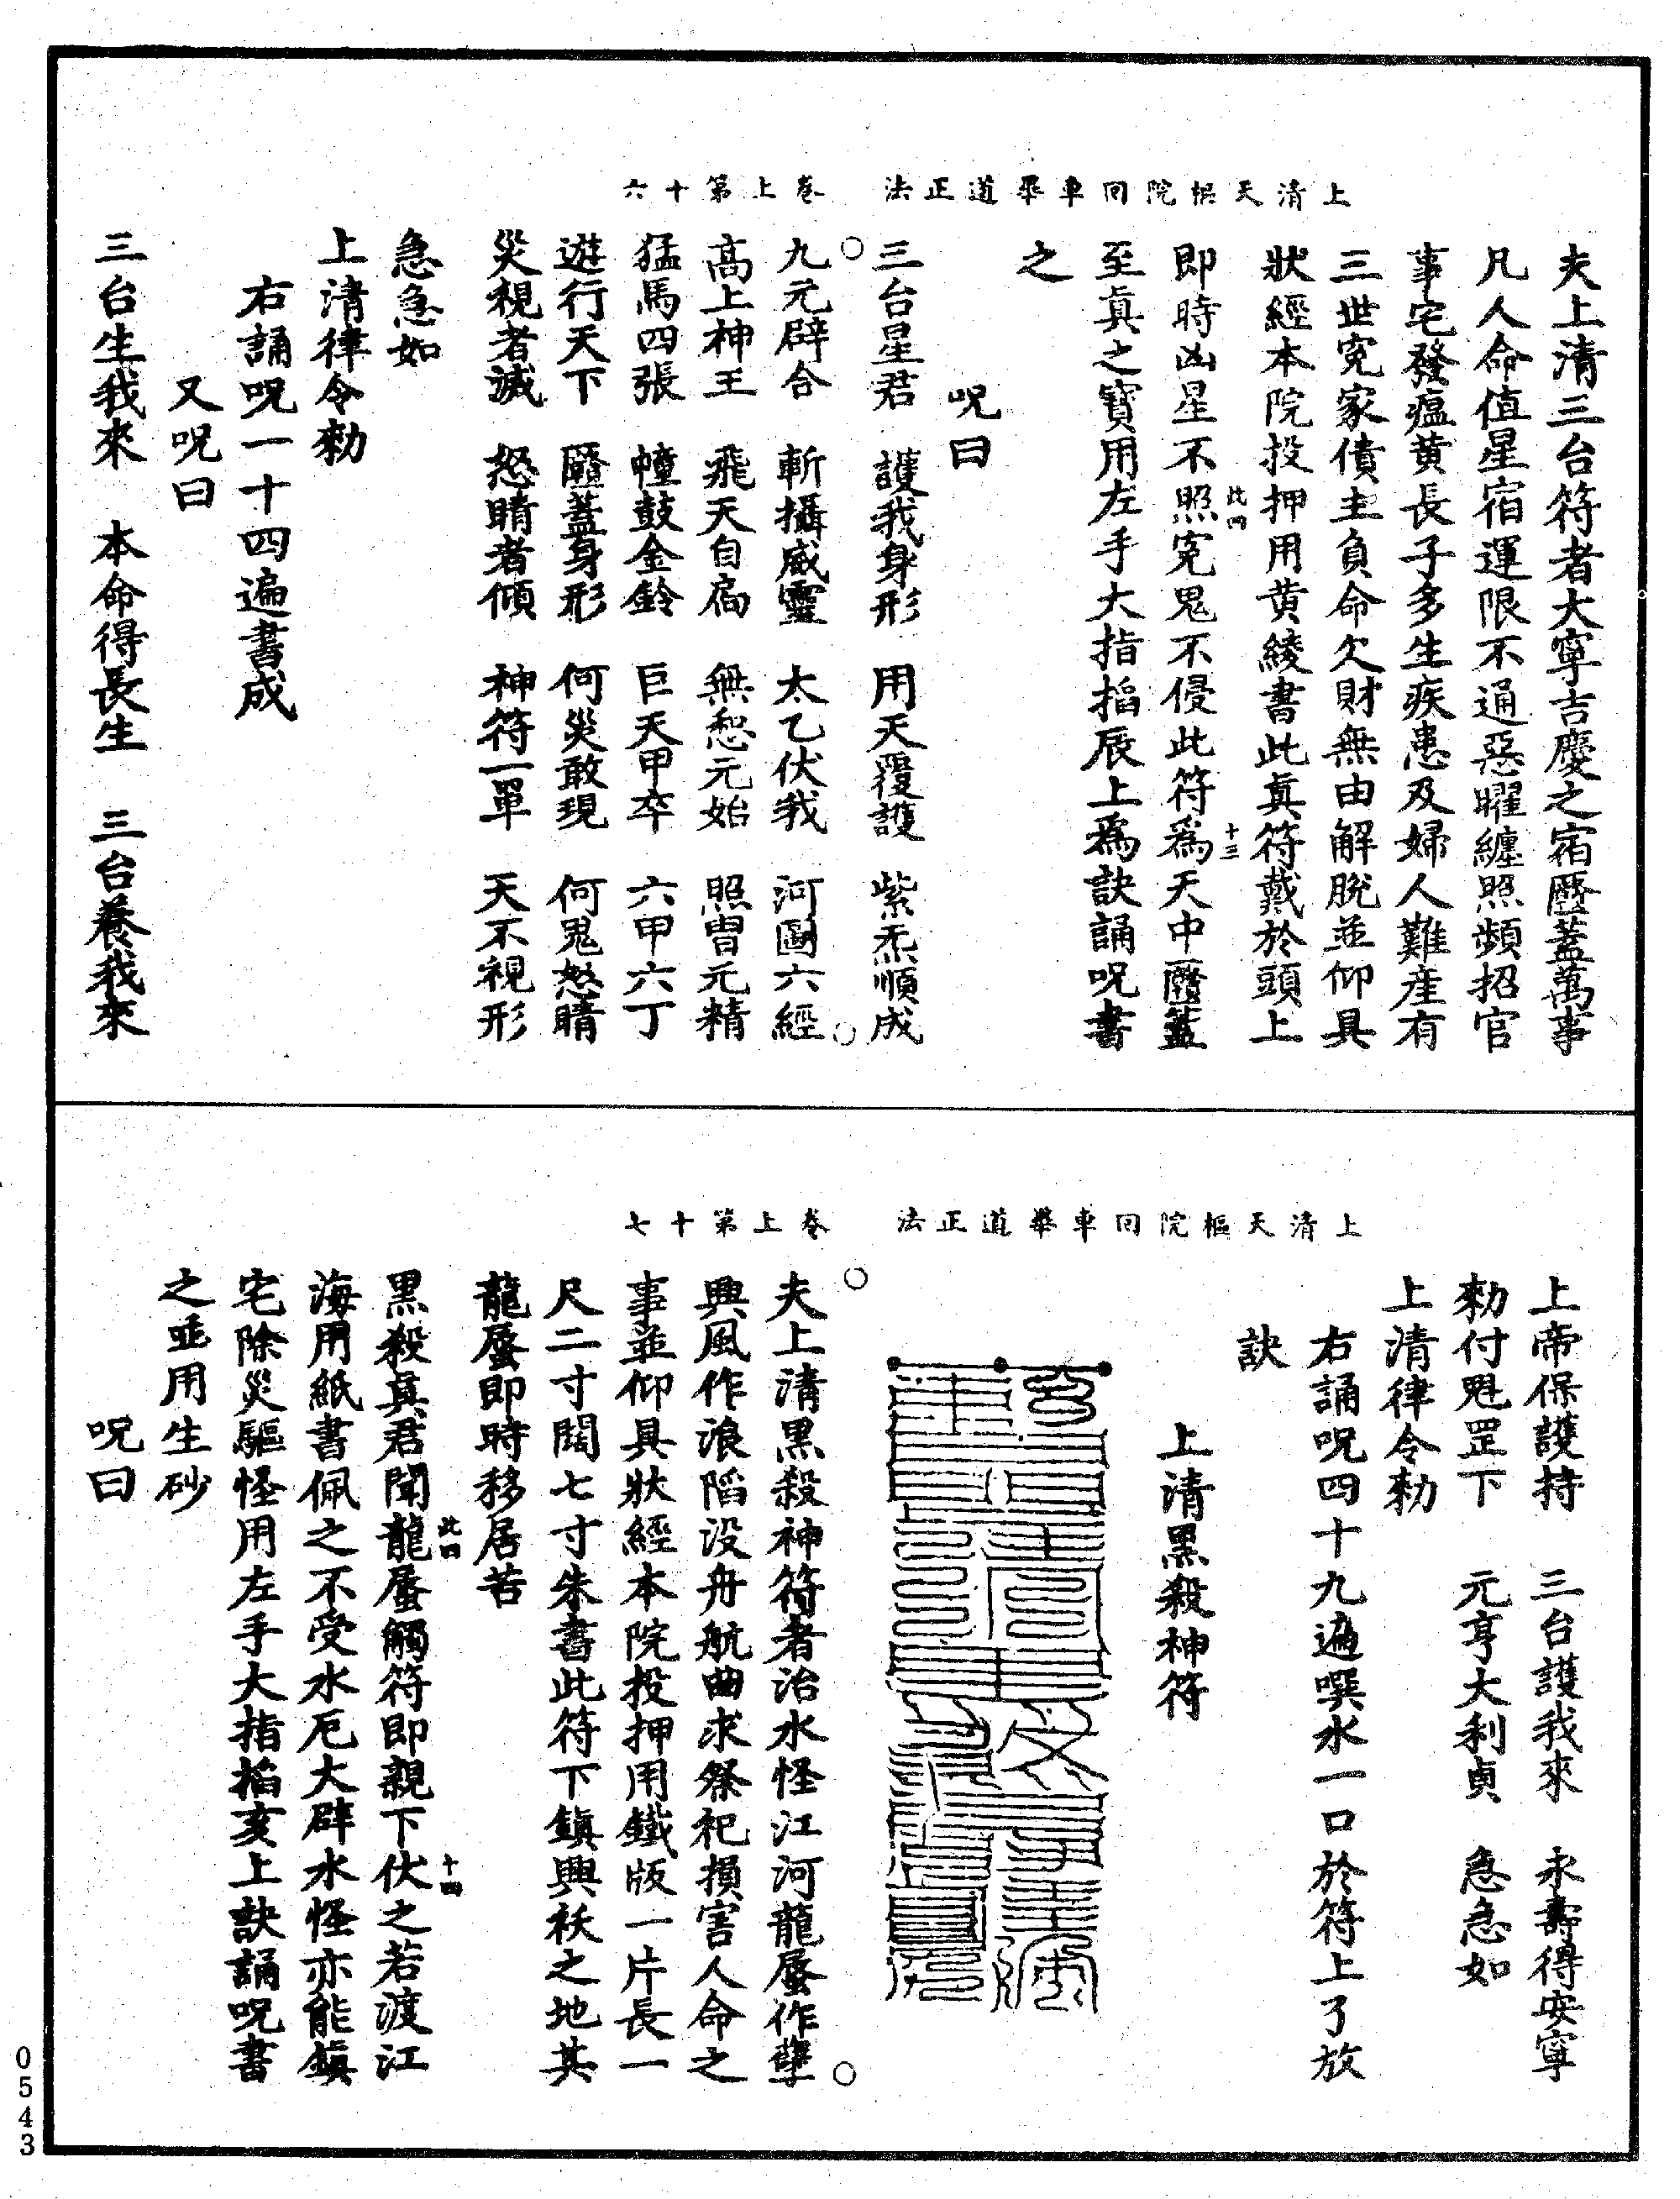 上清天樞院回車畢道正法　卷上第十六
夫上清三台符者大寧吉慶之宿蔭蓋萬事
凡人命值星宿運限不通惡曜纏照頻招官
事宅發瘟黄長子多生疾患及婦人難産有
三世寃家債主負命欠財無由解脫並仰具
狀經本院投押用黄綾書此眞符戴於頭上
即時凶星不照寃鬼不侵此符爲天中蔭蓋
此四　十三
至眞之寳用左手大指掐辰上爲訣誦呪書
之
呪曰
三台星君　護我身形　用天覆護　紫炁順成
九元辟合　斬攝威靈　太乙伏我　河圖六經
高上神王　飛天自扄　無愆元始　照胄元精
猛馬四張　幢鼓金鈴　巨天甲卒　六甲六丁
遊行天下　蔭蓋身形　何災敢現　何鬼怒睛
災視者滅　怒睛者傾　神符一單　天不視形
急急如
上清律令勑
右誦呪一十四遍書成
又呪曰
三台生我來　本命得長生　三台養我來
上清天樞院回車畢道正法　卷上第十七
上帝保護持　三台護我來　永壽得安寧
勑付魁罡下　元亨大利貞　急急如
上清律令勑
右誦呪四十九遍噀水一口於符上了放
訣
上清黑殺神符
夫上清黑殺神符者治水怪江河龍蜃作孽
興風作浪陷没舟航曲求祭祀損害人命之
事並仰具狀經本院投押用鐵版一片長一
尺二寸闊七寸朱書此符下鎮興袄之地其
龍蜃即時移居苦
此四　十四
黑殺眞君聞龍蜃觸符即親下伏之若渡江
海用紙書佩之不受水厄大辟水怪亦能鎮
宅除災驅怪用左手大指掐亥上訣誦呪書
之並用生砂
呪曰
0543